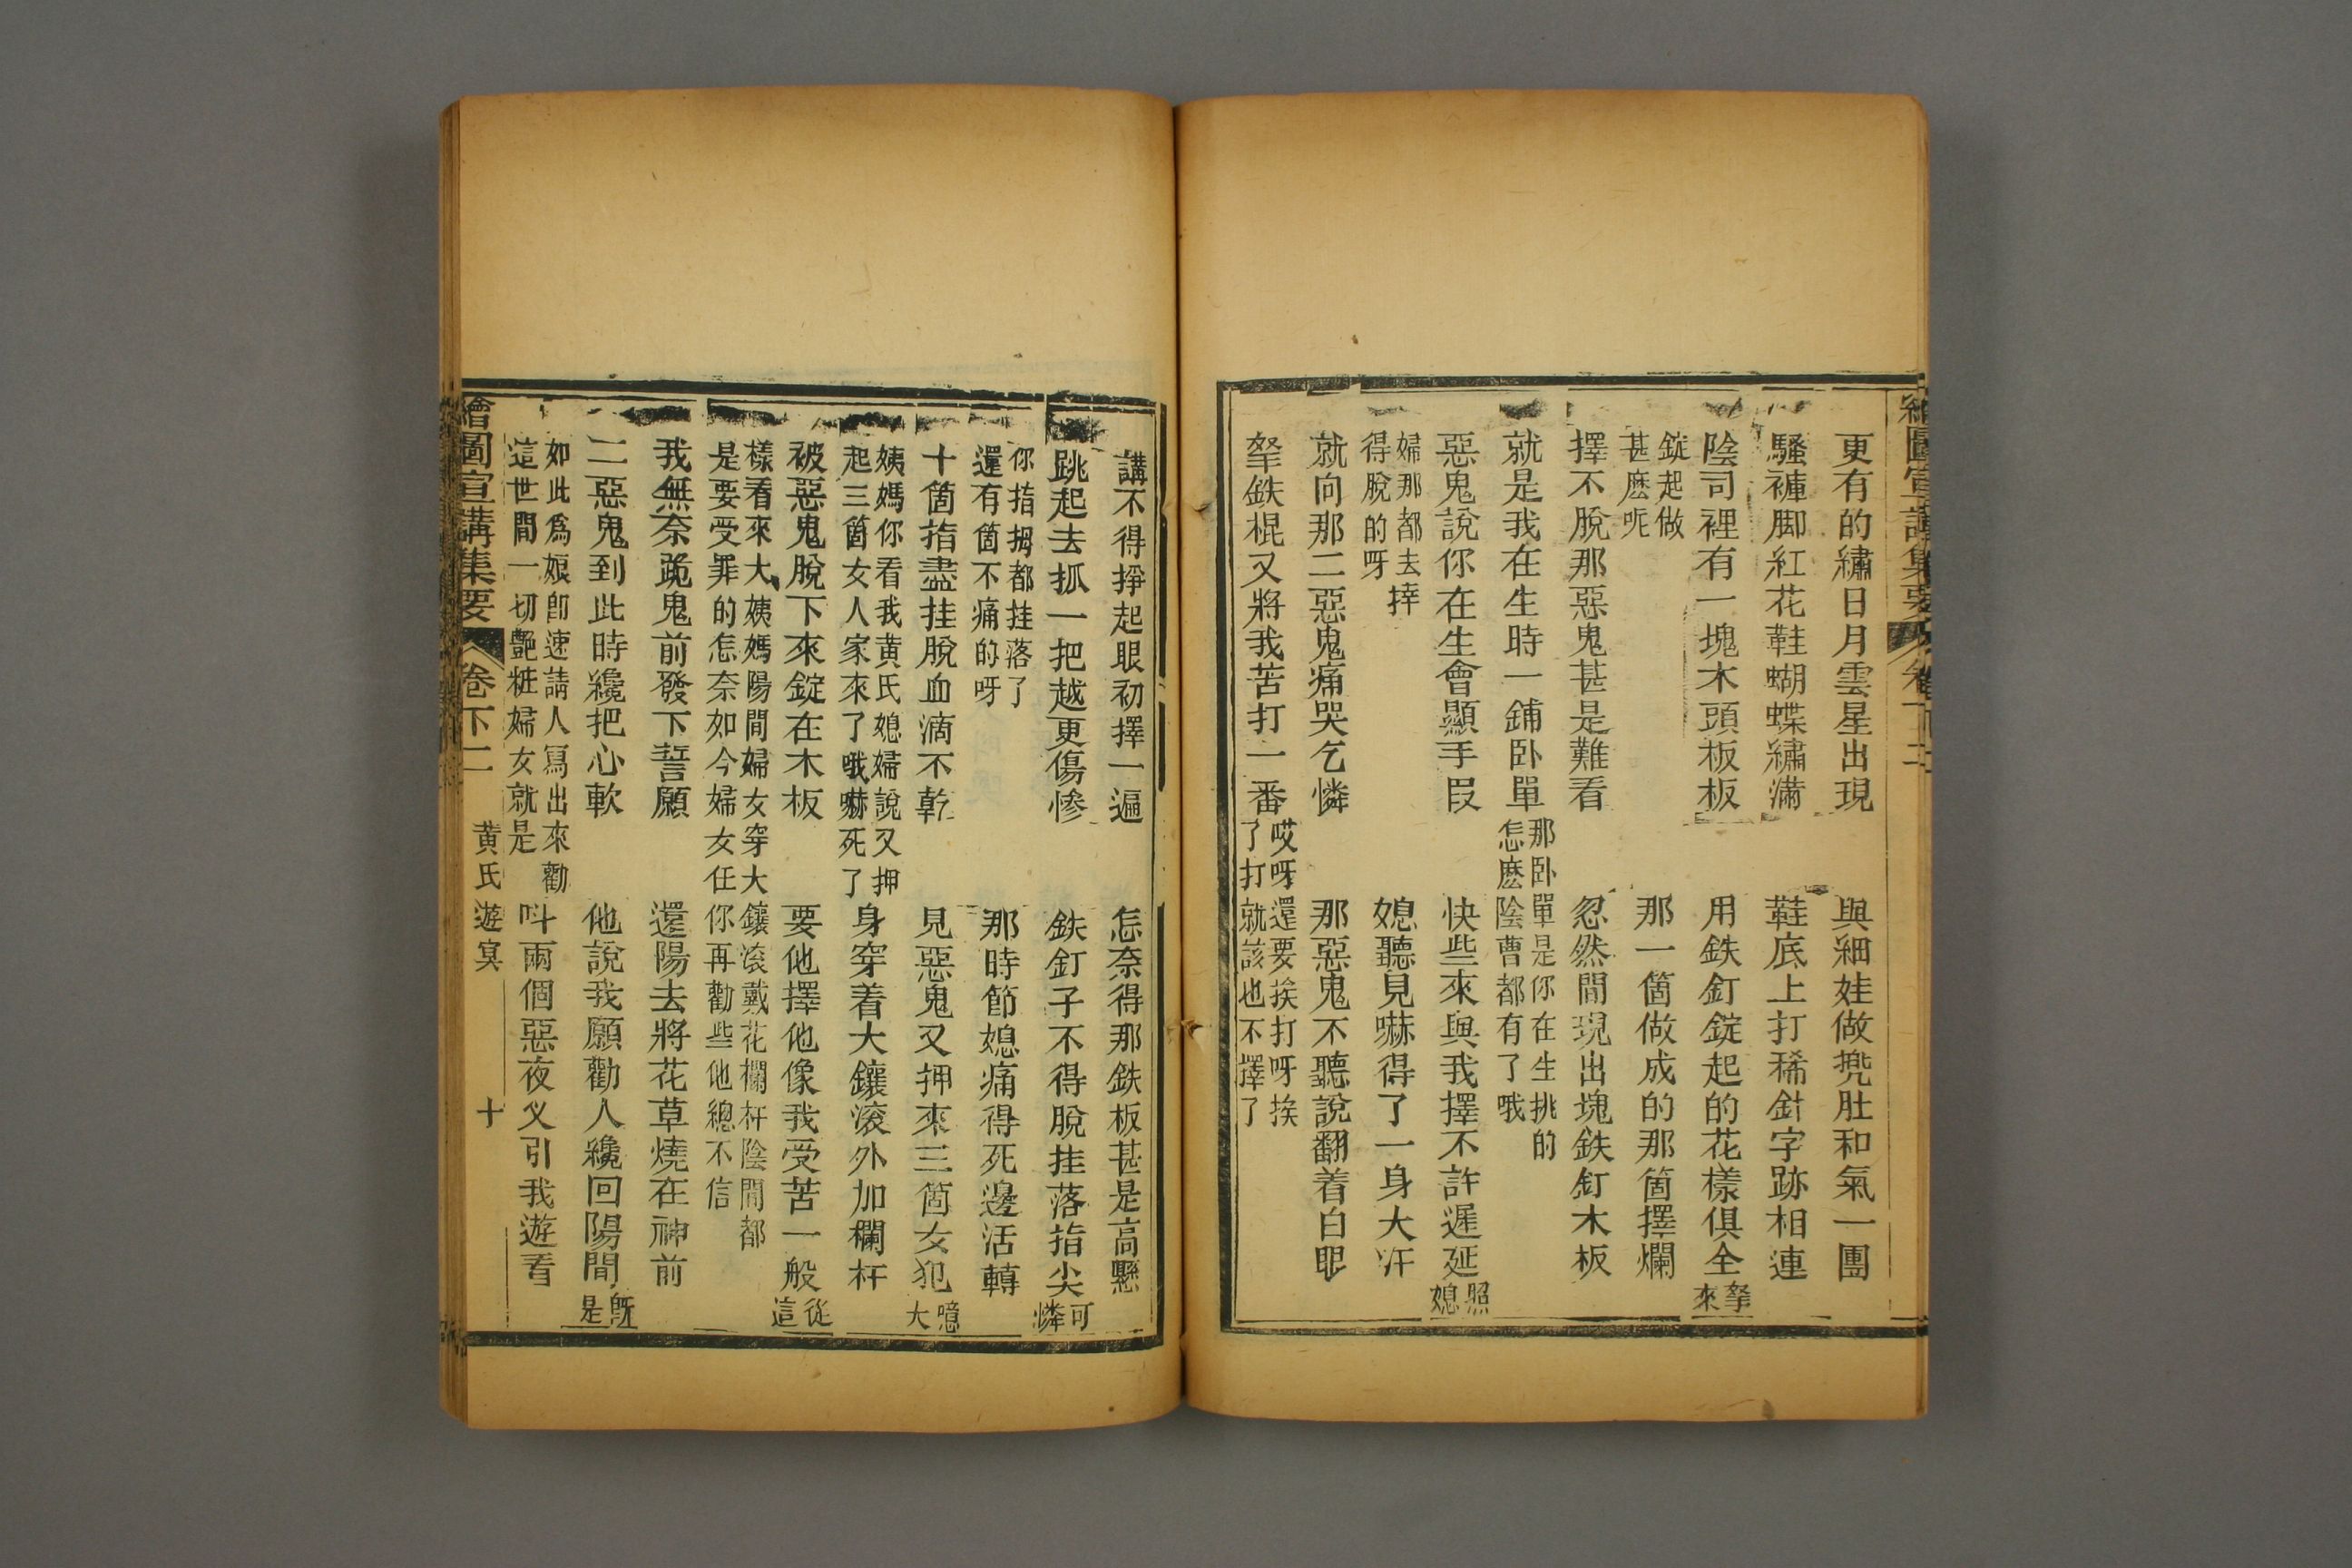 繪圖宣講集要
更有的繡日月雲星出現　與細娃做兜肚和氣一團
騷褲脚紅花鞋蝴蝶繡滿　鞋底上打稀針字跡相連
陰司裡有一塊木頭板板　用鉄釘錠起的花樣俱全拏來
錠起做甚麽呢　那一箇做成的那箇擇爛
擇不脫那惡鬼甚是難看　忽然間現出塊鉄釘木板
就是我在生時一鋪卧單那卧單是你在生挑的怎麽陰曹都有了哦
惡鬼說你在生會顯手段　快些來與我擇不許遲延照媳
婦那都去擇得脫的呀　媳聽見嚇得了一身大汗
就向那二惡鬼痛哭乞憐　那惡鬼不聽說翻着白眼
拏鉄棍又將我苦打一番哎呀還要挨打呀挨了打就該也不擇了
講不得掙起眼初擇一遍　怎奈得那鉄板甚是高懸
跳起去抓一把越更傷慘　鉄釘子不得脫挂落指尖可憐
你指拇都挂落了還有箇不痛的呀　那時節媳痛得死邊活轉
十箇指盡挂脫血滴不乾　見惡鬼又押來三箇女犯噫大
姨媽你看我黄氏媳婦說又押起三箇女人家來了哦嚇死了　身穿着大鑲滚外加欄杆
被惡鬼脫下來錠在木板　要他擇他像我受苦一般從這
樣看來大姨媽陽間婦女穿大鑲滚戴花欄杆陰間都是要受罪的怎奈如今婦女任你再勸些他總不信
我無奈跪鬼前發下誓願　還陽去將花草燒在神前
二惡鬼到此時纔把心軟　他說我願勸人纔回陽間旣是
如此爲娘卽速請人寫出來勸這世間一切艷粧婦女就是　呌兩個惡夜叉引我遊看
繪圖宣講集要　卷下二　黄氏遊冥　十